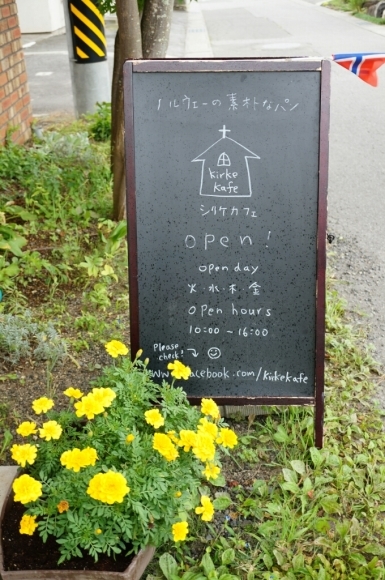 ノルウェーの素朴なパン
kirke
kafe
シリケカフェ
open!
open day
火・水・木・金
open hours
10:00 ~ 16:00
Please
check!
www.facebook.com/kirkekafe